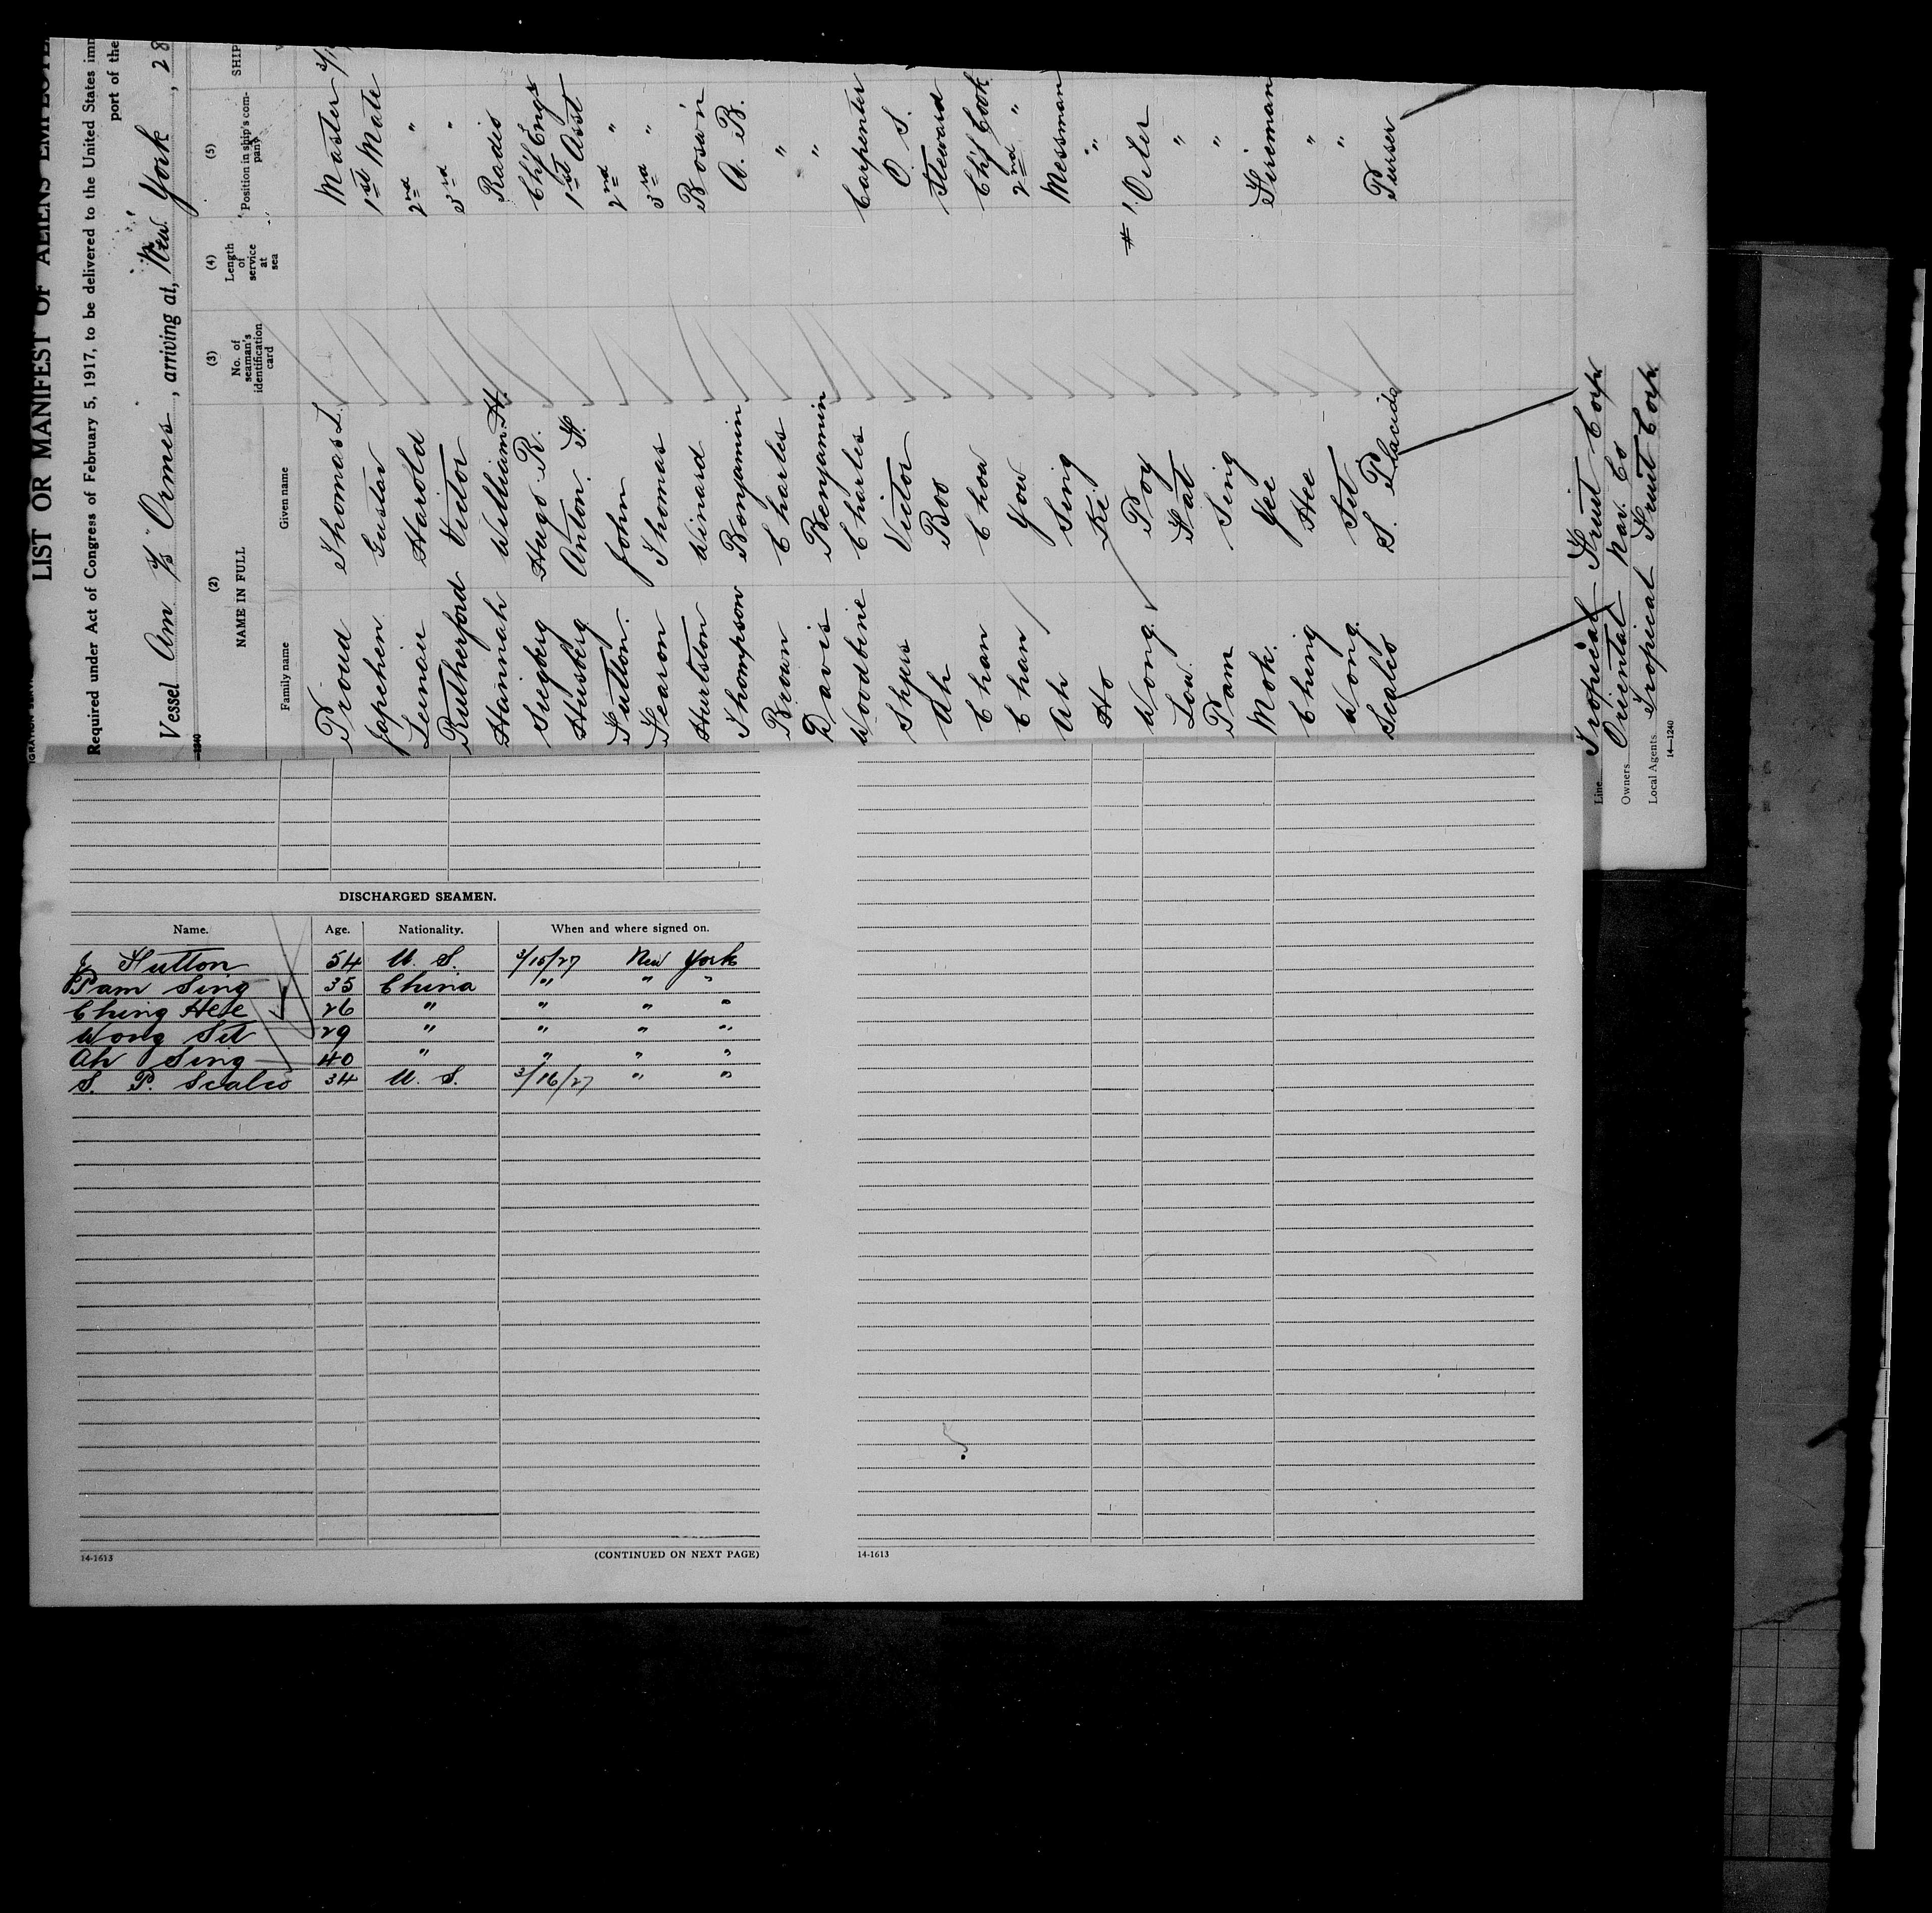 LIST OR MANIFEST OF ALIENS EMPLOYED
Required under Act of Congress of February 5, 1917, to be delivered to the United States imm
port of the
Vessel Am S/S "Ormes", arriving at, New York, 28
(2) (3) (4) (5)
NAME IN FULL No. of seaman's identification card Length of service at sea Position in ship's company SHIP
Family name Given name
Proud Thomas L. Master
Gustav 1st Mate
Lenoir Harold 2nd "
Rutherford Victor 3rd "
Hainnah William H. Radio
Hugo R. Chf Engr
Husberg Anton F. 1st Asst
Hutton. John 2nd "
Fearon Thomas 3rd "
Hurlston Winard Bosw'n
Thompson Benjamin A. B.
Brown Charles "
Davis Benjamin "
Woodbine Charles Carpenter
Victor O S.
Ah Boo Steward
Chan Chow Chf Cook
Chan You 2nd "
Ah Sing Messman
Ho Ki "
Wong Poy #1 Oiler
Low Fat "
Pam Sing "
Mok. Yee Fireman
Ching Hee "
Wong Sit "
Scalco S. Placido Purser
Line Tropical Fruit Corp
Owners Oriental Nav. Co
Local Agents Tropical Fruit Corp.
14—1240
DISCHARGED SEAMEN.
Name. Age. Nationality. When and where signed on.
J Hutton 54 U. S. 3/15/27 New York
Pam Sing 35 China " " "
Ching Hee 26 " " " "
Wong Sit 29 " " " "
Ah Sing 40 " " " "
S. P. Scalco 34 U. S. 3/16/27 " "
14-1613
(CONTINUED ON NEXT PAGE)
14-1613